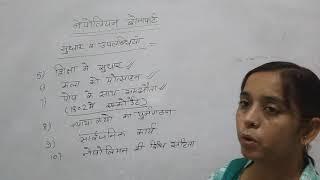 नेपोलियन बोनापार्ट
सुधार व उपलब्धियाँ
5) शिक्षा में सुधार
6) कला को प्रोत्साहन
7) पोप के साथ समझौता
(1802 में कॉनकोर्डेट)
8) न्याय व्यवस्था का पुनर्गठन
9) सार्वजनिक कार्य
10) नेपोलियन की विधि संहिता